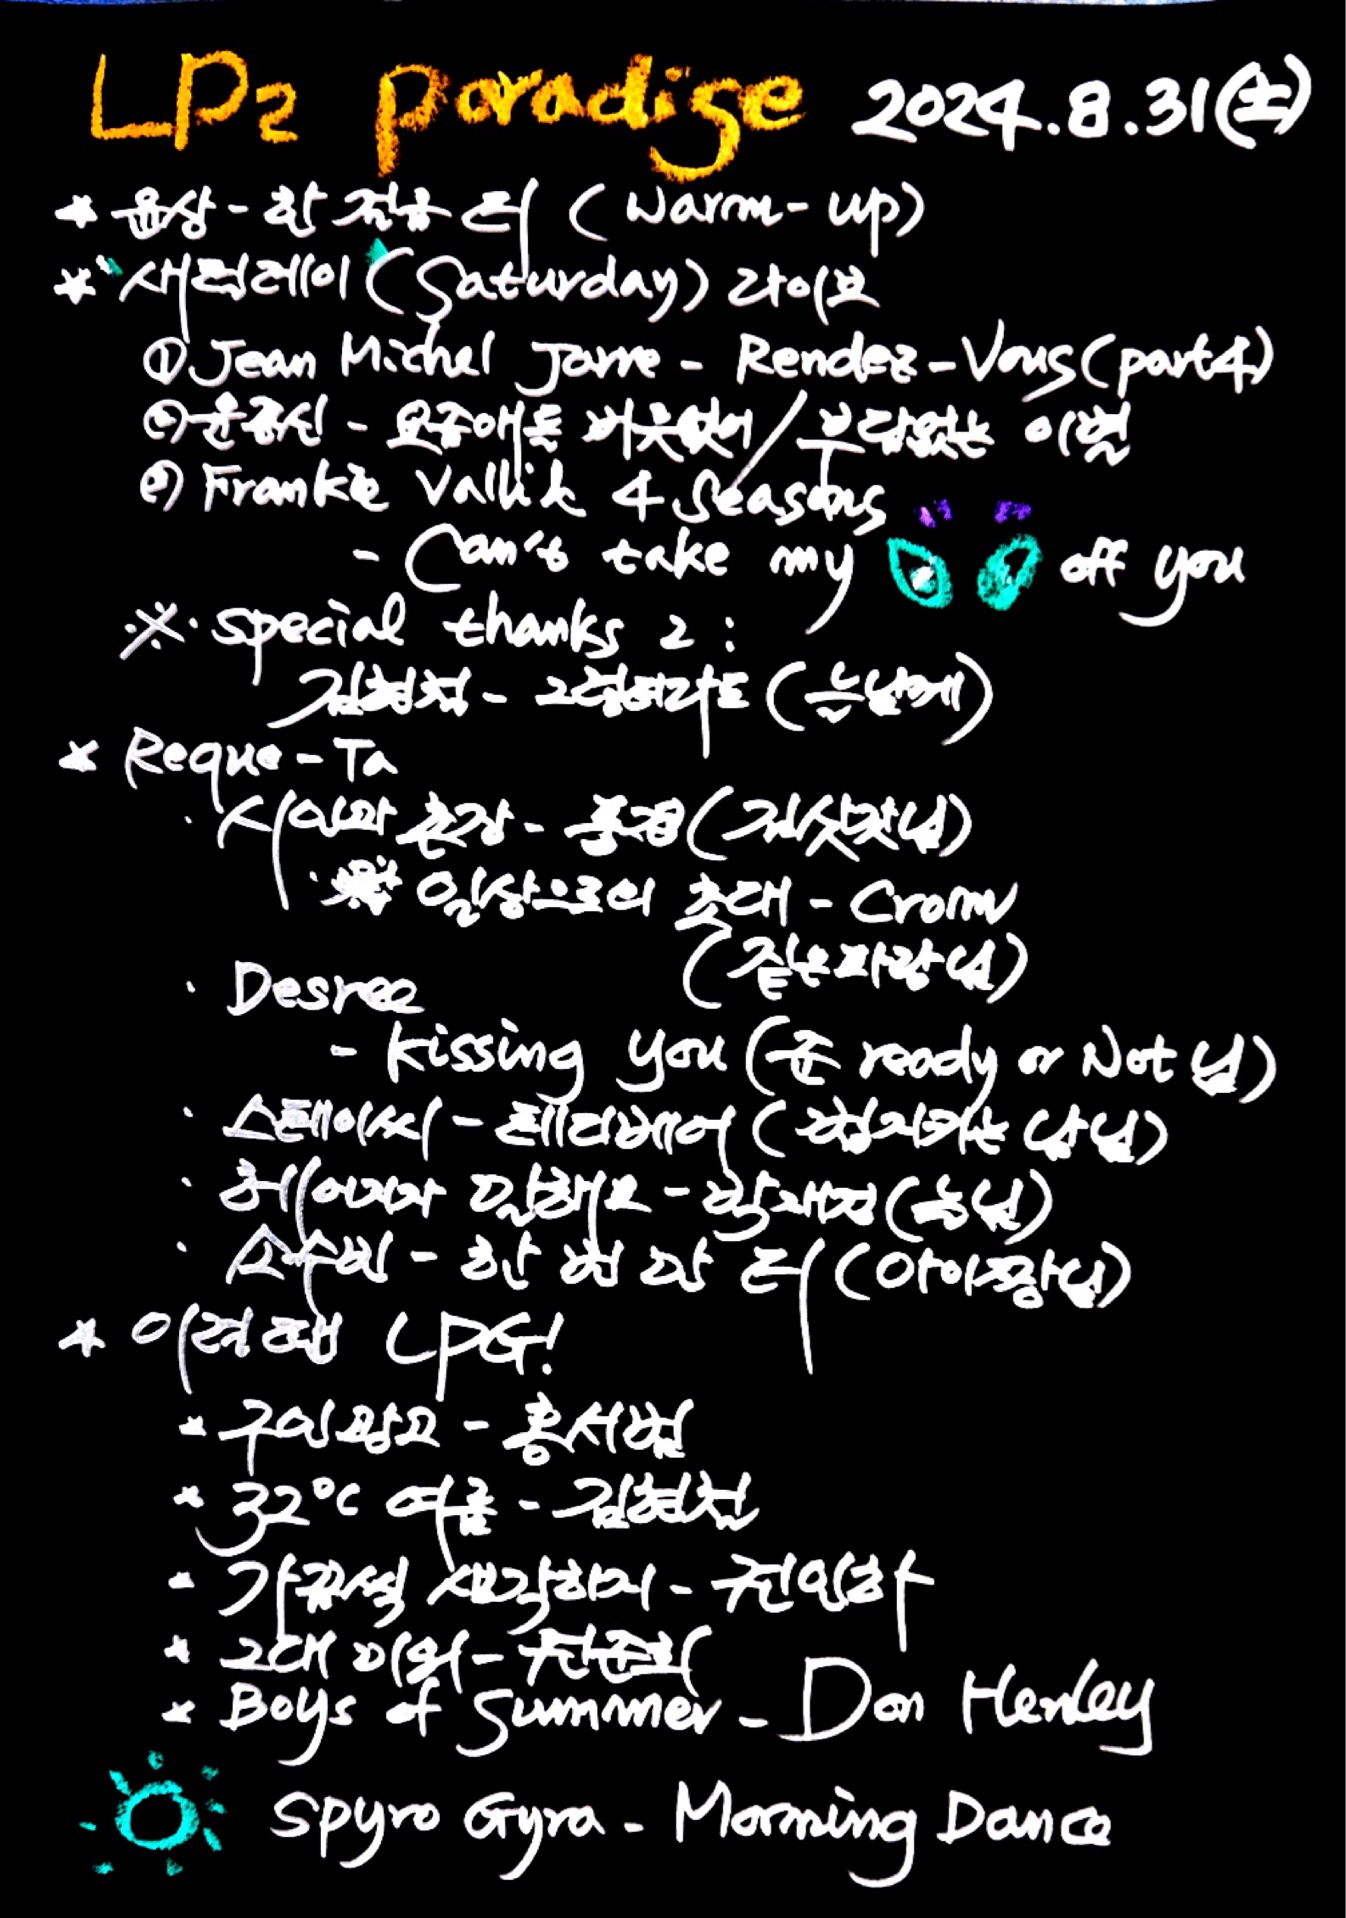 LP2 paradise 2024.8.31(土)
* 윤상 - 한 걸음 더 (Warm-up)
* 새터데이 (Saturday) 라이브
① Jean Michel Jarre - Rendez-Vous (part4)
② 윤종신 - 요즘애들 버릇없어 / 부담없는 이별
③ Frankie Valli & 4 Seasons
- Can't take my off you
※ special thanks 2 :
김형철 - 그럼더라도 (늦날에)
* Reque-Ta
· 시인과 촌장 - 풍경 (김삿갓님)
· 일상으로의 초대 - Crom
(짙은파랑님)
· Desree
- Kissing you (준 ready or Not 님)
· 스테이씨 - 테디베어 (지키는 남님)
· 헤어지자 말해요 - 박재정 (농님)
· 소수빈 - 한 번 만 더 (아이짱님)
* 이럴때 LPG!
* 구인광고 - 홍서범
* 32°C 여름 - 김현철
* 가끔씩 생각하지 - 전인하
* 그대 미워 - 전준희
* Boys of Summer - Don Henley
Spyro Gyra - Morning Dance